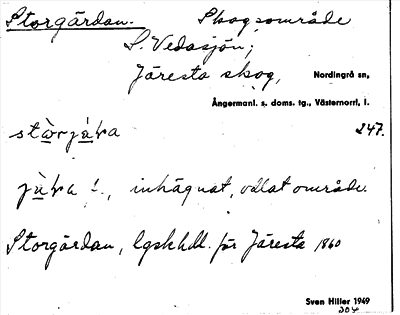 Storgårdan. Skogsområde
S. Vedasjön;
Järesta skog, Nordingrå sn,
Ångermanl. s. doms. tg., Västernorrl. l.
247.
inhägnat, odlat område.
Storgårdan, lgskhdl. för Järesta 1860
Sven Hiller 1949
204